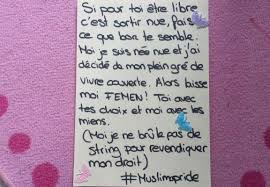 Si pour toi être libre
c'est sortir nue, fais
ce que bon te semble.
Moi je suis née nue et j'ai
décidé de mon plein gré de
vivre couverte. Alors laisse
moi FEMEN! Toi avec
tes choix et moi avec les
miens.
(Moi je ne brûle pas de
string pour revendiquer
mon droit)
#Muslimapride